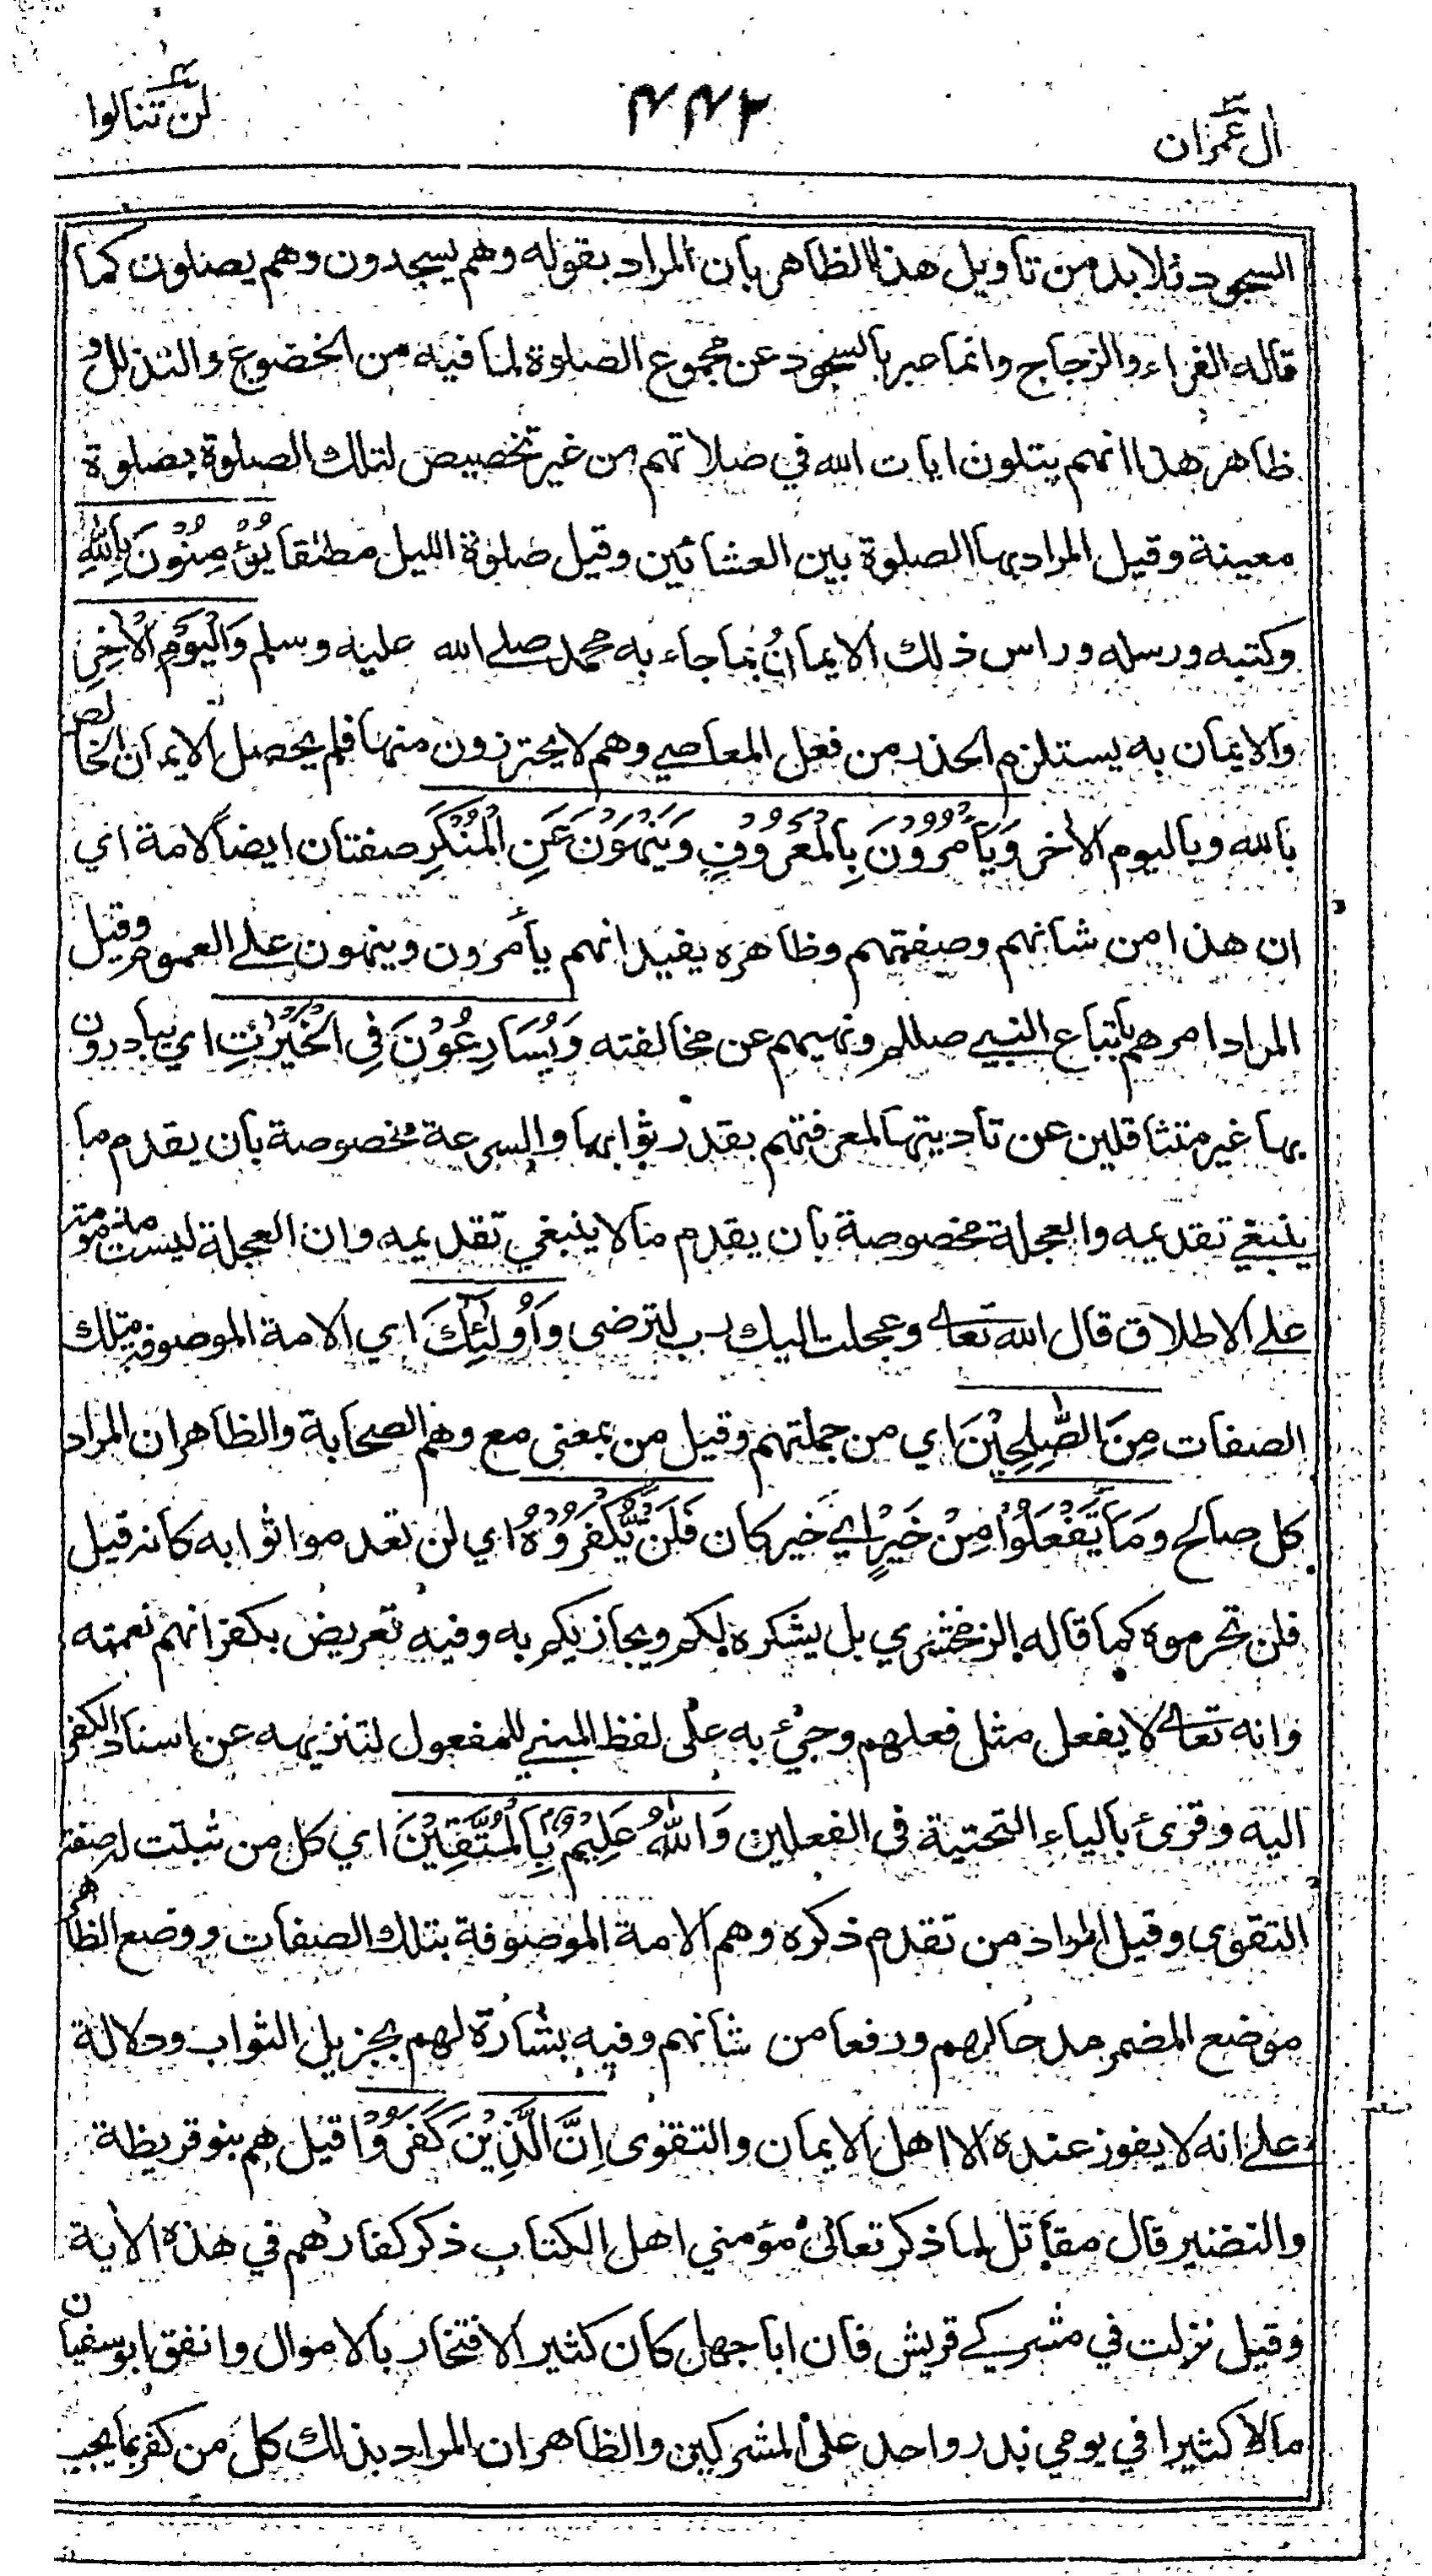 اٰل عمرٰن
٤٤٢
لن تنالوا
السجود فلابد من تأويل هذا الظاهر بان المراد بقوله وهم يسجدون وهم يصلون كما
قاله الفراء والزجاج وانما عبر بالسجود عن مجموع الصلوة لما فيه من الخضوع والتذلل و
ظاهر هذا انهم يتلون ايات الله في صلاتهم من غير تخصيص لتلك الصلوة بصلوة
معينة وقيل المراد بها الصلوة بين العشائين وقيل صلوة الليل مطلقا يُؤْمِنُوْنَ بِاللّٰهِ
وكتبه ورسله وراس ذلك الايمان بما جاء به محمد صلے الله عليه وسلم وَالْيَوْمِ الْاٰخِرِ
والايمان به يستلزم الحذر من فعل المعاصي وهم لا يحترزون منها فلم يحصل الايمان الخالص
بالله وباليوم الاٰخر وَيَاْمُرُوْنَ بِالْمَعْرُوْفِ وَيَنْهَوْنَ عَنِ الْمُنْكَرِ صفتان ايضا لامة اي
ان هذا من شانهم وصفتهم وظاهره يفيد انهم يأمرون وينهون علے العموم وقيل
المراد امرهم باتباع النبي صللم ونهيهم عن مخالفته وَيُسَارِعُوْنَ فِي الْخَيْرٰتِ اي يبادرون
بها غير متثاقلين عن تاديتها لمعرفتهم بقدر ثوابها والسرعة مخصوصة بان يقدم ما
ينبغي تقديمه والعجلة مخصوصة بان يقدم ما لا ينبغي تقديمه وان العجلة ليست مذمومة
علے الاطلاق قال الله تعالے وعجلت اليك رب لترضى وَاُولٰٓئِكَ اي الامة الموصوفة بتلك
الصفات مِنَ الصّٰلِحِيْنَ اي من جملتهم وقيل من بمعنى مع وهم الصحابة والظاهر ان المراد
كل صالح وَمَا تَفْعَلُوْا مِنْ خَيْرٍ اي خير كان فَلَنْ تُكْفَرُوْهُ اي لن تعدموا ثوابه كانه قيل
فلن تحرموه كما قاله الزمخشري بل يشكره لكم ويجازيكم به وفيه تعريض بكفرانهم نعمته
وانه تعالے لا يفعل مثل فعلهم وجيْ به على لفظ المبني للمفعول لتنزيهه عن اسناد الكفر
اليه وقرئ بالياء التحتية في الفعلين وَاللّٰهُ عَلِيْمٌ بِالْمُتَّقِيْنَ اي كل من ثبتت له صفة
التقوى وقيل المراد من تقدم ذكره وهم الامة الموصوفة بتلك الصفات ووضع الظاهر
موضع المضمر مدحا لهم ورفعا من شانهم وفيه بشارة لهم بجزيل الثواب ودلالة
علے انه لا يفوز عنده الا اهل الايمان والتقوى اِنَّ الَّذِيْنَ كَفَرُوْا قيل هم بنو قريظة
والنضير قال مقاتل لما ذكر تعالىٰ مؤمني اهل الكتاب ذكر كفارهم في هذه الاٰية
وقيل نزلت في مشركے قريش فان ابا جهل كان كثير الافتخار بالاموال وانفق ابو سفيان
مالا كثيرا في يومي بدر واحد على المشركين والظاهر ان المراد بذلك كل من كفر بما يجب